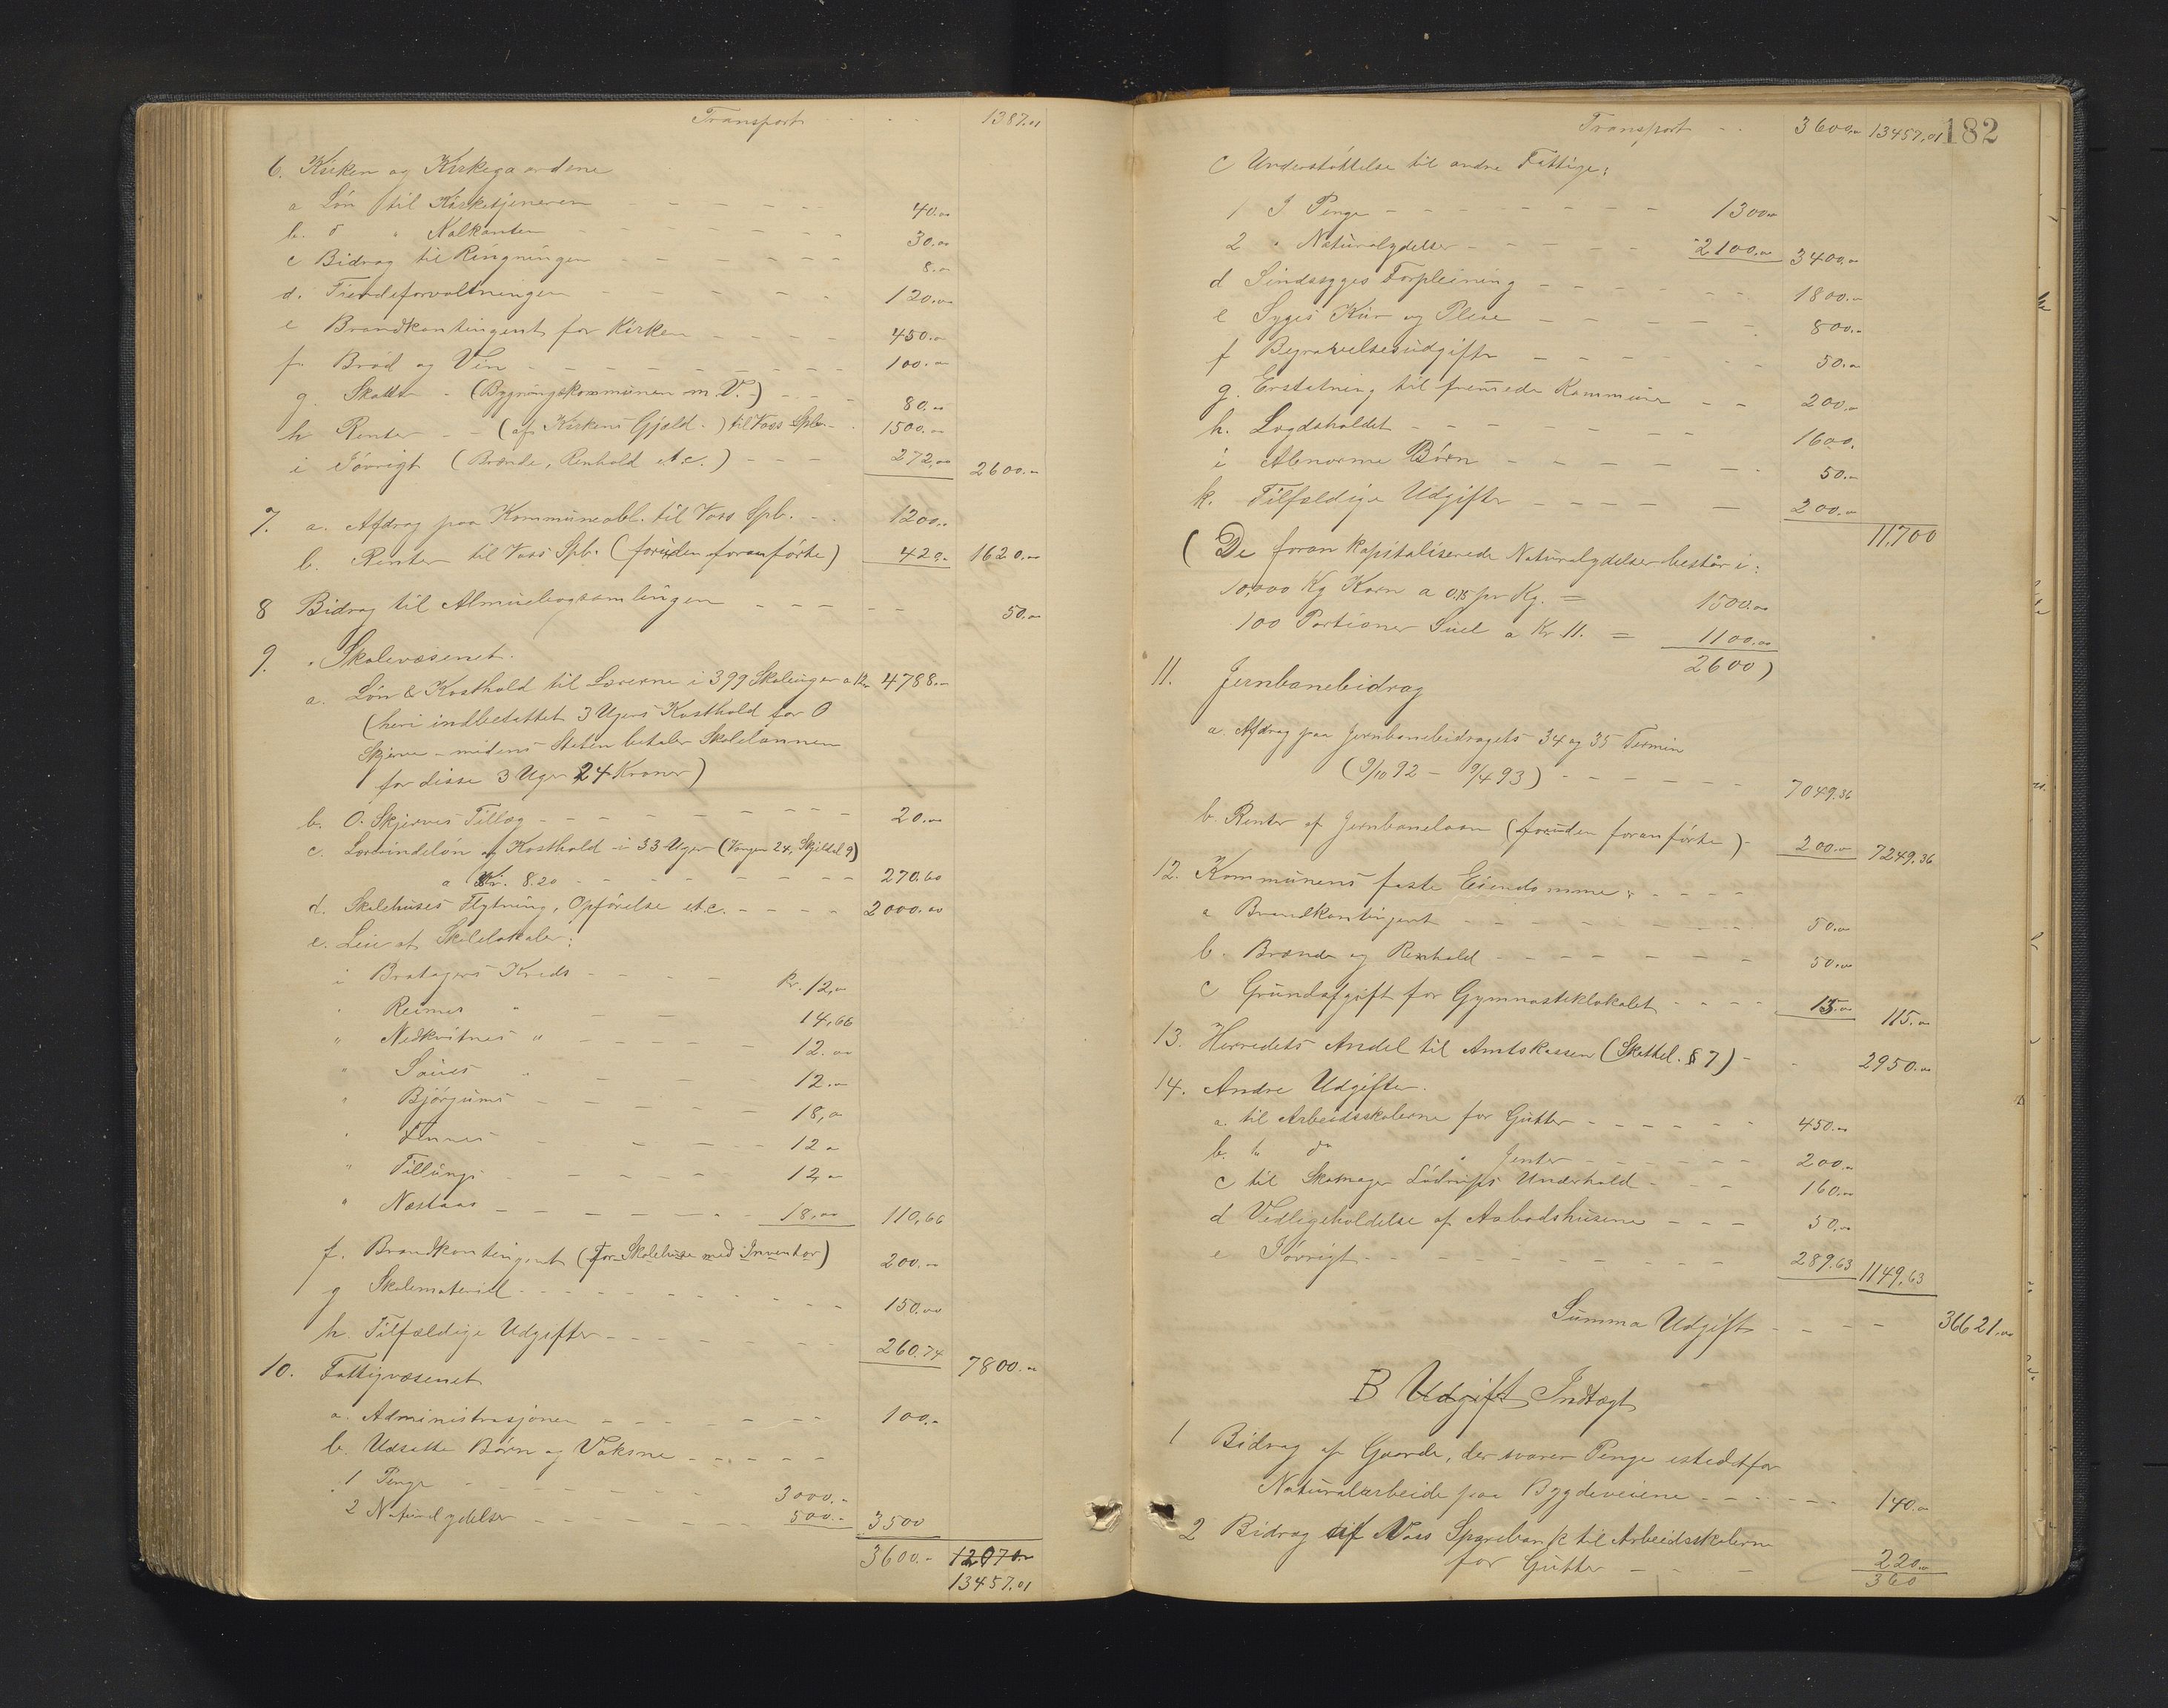 Transport - - - 1387.01
6. Kirken og Kirkegaardene
a Løn til Kirketjeneren - - - - - - 40.00
b. do " Kalkanten - - - - - - 30.00
c Bidrag til Ringningen - - - - - - 8.00
d. Tiendeforvaltningen - - - - - - 120.00
e Brandkontingent for Kirken - - - - 450.00
f. Brød og Vin - - - - - - - - 100.00
g. Skatter - (Bygningskommunen m.V.) - - - 80.00
h Renter - - (af Kirkens Gjæld -) til Voss Spb. - 1500.00
i Iøvrigt (Brænde, Renhold etc.) - - - 272,00 2600.00
7. a. Afdrag paa Kommuneobl. til Voss Spb. - - 1200.00
b. Renter til Voss Spb. (foruden foranførte) 420.- 1620.00
8 Bidrag til Almuebogsamlingen - - - - - 50.00
9. Skolevæsenet.
a. Løn & Kosthold til Lærerne i 399 Skoleuger a 12.00 4788.-
(heri indbefattet 3 Ugers Kosthold for O
Skjerve - medens Staten betaler Skolelønnen
for disse 3 Uger 24 Kroner)
b. O. Skjerves Tillæg - - - - - - - - 20.00
c. Lærerindeløn og Kosthold i 33 Uger (Vangen 24, Skjeldal 9)
a Kr. 8.20 - - - - - - - - 270.60
d. Skolehuses Flytning, Opførelse etc. - - - - 2000.00
e. Leie af Skolelokaler:
i Bratagers Kreds - - - - Kr. 12,00
" Reimes " - - 14,66
" Nedkvitnes " - - - - - 12.00
" Saues " - - 12.00
" Bjørgums - - - - - 18,00
" Finnes - - - - 12 00
" Tillungs - - - - - 12,00
" Næstaas - - - - - - - 18,00 110,66
f. Brandkontingent (for Skolehuse med Inventar) 200.00
g Skolemateriel - - - - - - - - - 150.00
h. Tilfældige Udgifter - - - - - - - 260.74 7800.00
10. Fattigvæsenet
a. Administrasjonen - - - - - - 100.-
b. Udsatte Børn og Voksne - - - - -
1 Penge - - - - - - - 3000.-
2 Naturalydelser - - - - - - 500.- 3500
3600.- 12070.00
13457.01
Transport - - 3600.00 13457,01 182
c Understøttelse til andre Fattige:
1 I Penge - - - - - - - - 1300.00
2 " Naturalydelser - - - - - 2100.00 3400.00
d Sindssyges Forpleining - - - - - - 1800.-
e Syges Kur og Pleie - - - - - 800.-
f Begravelsesudgifter - - - - - 50.00
g. Erstatning til fremede Kommuner - - 200.00
h. Lægdsholdet - - - - - - - - 1600.
i Abnorme Børn - - - - - - - 50.-
k. Tilfældige Udgifter - - - - - 200.00
11,700
( De foran kapitaliserede Naturalydelser består i:
10,000 Kg Korn a 0.15 pr Kg. = 1500.00
100 Portioner Suel a Kr 11. = 1100.00
2600)
11. Jernbanebidrag
a. Afdrag paa Jernbanebidragets 34 og 35 Termin
(9/10 92 - 9/4 93) - - - - - - 7049.36
b. Renter af Jernbanelaan (foruden foranførte) - 200.00 7249,36
12. Kommunens faste Eiendomme: - - - -
a Brandkontingent - - - - - - - - 50.00
b. Brænde og Renhold - - - - - - - 50.00
c Grundafgift for Gymnastiklokalet - - - - 15.00 115.00
13. Herredets Andel til Amtskassen (Skattel. § 7) - - 2950.00
14. Andre Udgifter.
a. til Arbeidsskolerne for Gutter - - - - - - 450.00
b. " do " Jenter - - - - - 200.00
c til Skomager Underhold - - - 160.00
d Vedligeholdelse af Aabodshusene - - - 50.00
e Iøvrigt - - - - - - - - - 289.63 1149,63
Summa Udgift - - - - 36621.00
B Udgift Indtægt
1 Bidrag af Gaarde, der svarer Penge istedetfor
Naturalarbeide paa Bygdeveiene - - - - - - 140.00
2 Bidrag af Voss Sparebank til Arbeidsskolerne
for Gutter - - - - 220.00
360